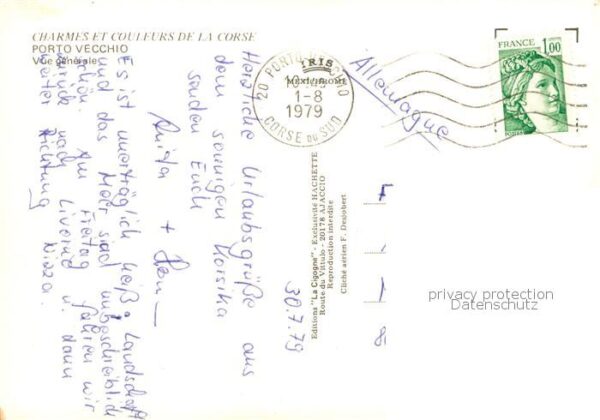 CHARMES ET COULEURS DE LA CORSE
PORTO VECCHIO
Vue générale
20 PORTO VECCHIO
1-8
1979
CORSE DU SUD
FRANCE
1,00
POSTES
Allemagne
30.7.79
Herzliche Urlaubsgrüße aus
dem sonnigen Korsika
senden Euch
Es ist unerträglich heiß. Landschaft
und das Meer sind unbeschreiblich
schön. Am Freitag fahren wir
zurück nach Livorno u. dann
weiter Richtung Nizza.
Editions "La Cigogne" - Exclusivité HACHETTE
Route du Vittulo - 20178 AJACCIO
Reproduction interdite
Cliché aérien F. Desjobert
IRIS
privacy protection
Datenschutz